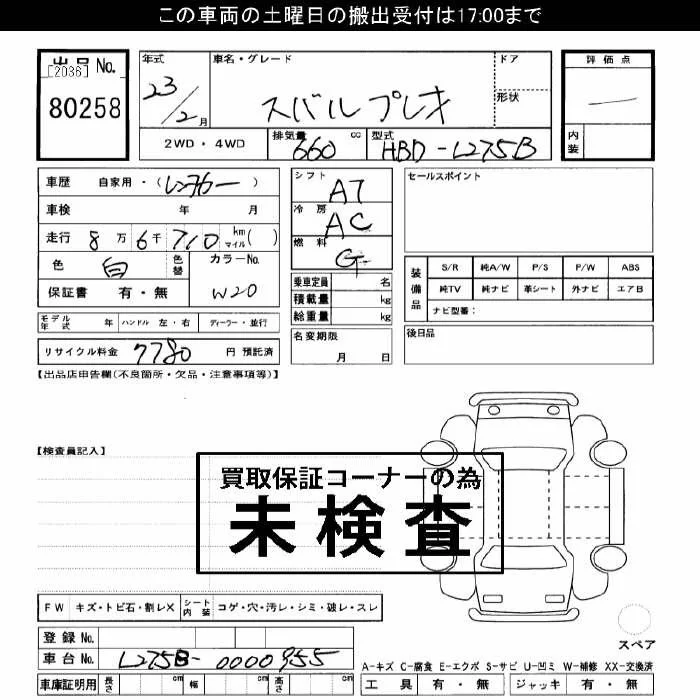 この車両の土曜日の搬出受付は17:00まで
出品 No.
[2036]
80258
年式
23/2月
車名・グレード
スバル プレオ
ドア
形状
評価点
内装
2WD・4WD
排気量 660 cc
型式 HBD-L275B
車歴 自家用・(レンタカー)
車検 年 月
走行 8万6千710 km マイル( )
色 白 色替
カラーNo. W20
保証書 有・無
シフト AT
冷房 AC
燃料 G
乗車定員 名
積載量 kg
総重量 kg
セールスポイント
装備品
S/R 純A/W P/S P/W ABS
純TV 純ナビ 革シート 外ナビ エアB
ナビ型番:
モデル年式 年 ハンドル 左・右 ディーラー・並行
名変期限 月 日
後日品
リサイクル料金 7780 円 預託済
【出品店申告欄(不良箇所・欠品・注意事項等)】
【検査員記入】
買取保証コーナーの為
未検査
FW キズ・トビ石・割レX シート内装 コゲ・穴・汚レ・シミ・破レ・スレ
スペア
登録 No.
車台 No. L275B-0000955
A-キズ C-腐食 E-エクボ S-サビ U-凹ミ W-補修 XX-交換済
車庫証明用 長さ cm 幅 cm 高さ cm
工具 有・無 ジャッキ 有・無